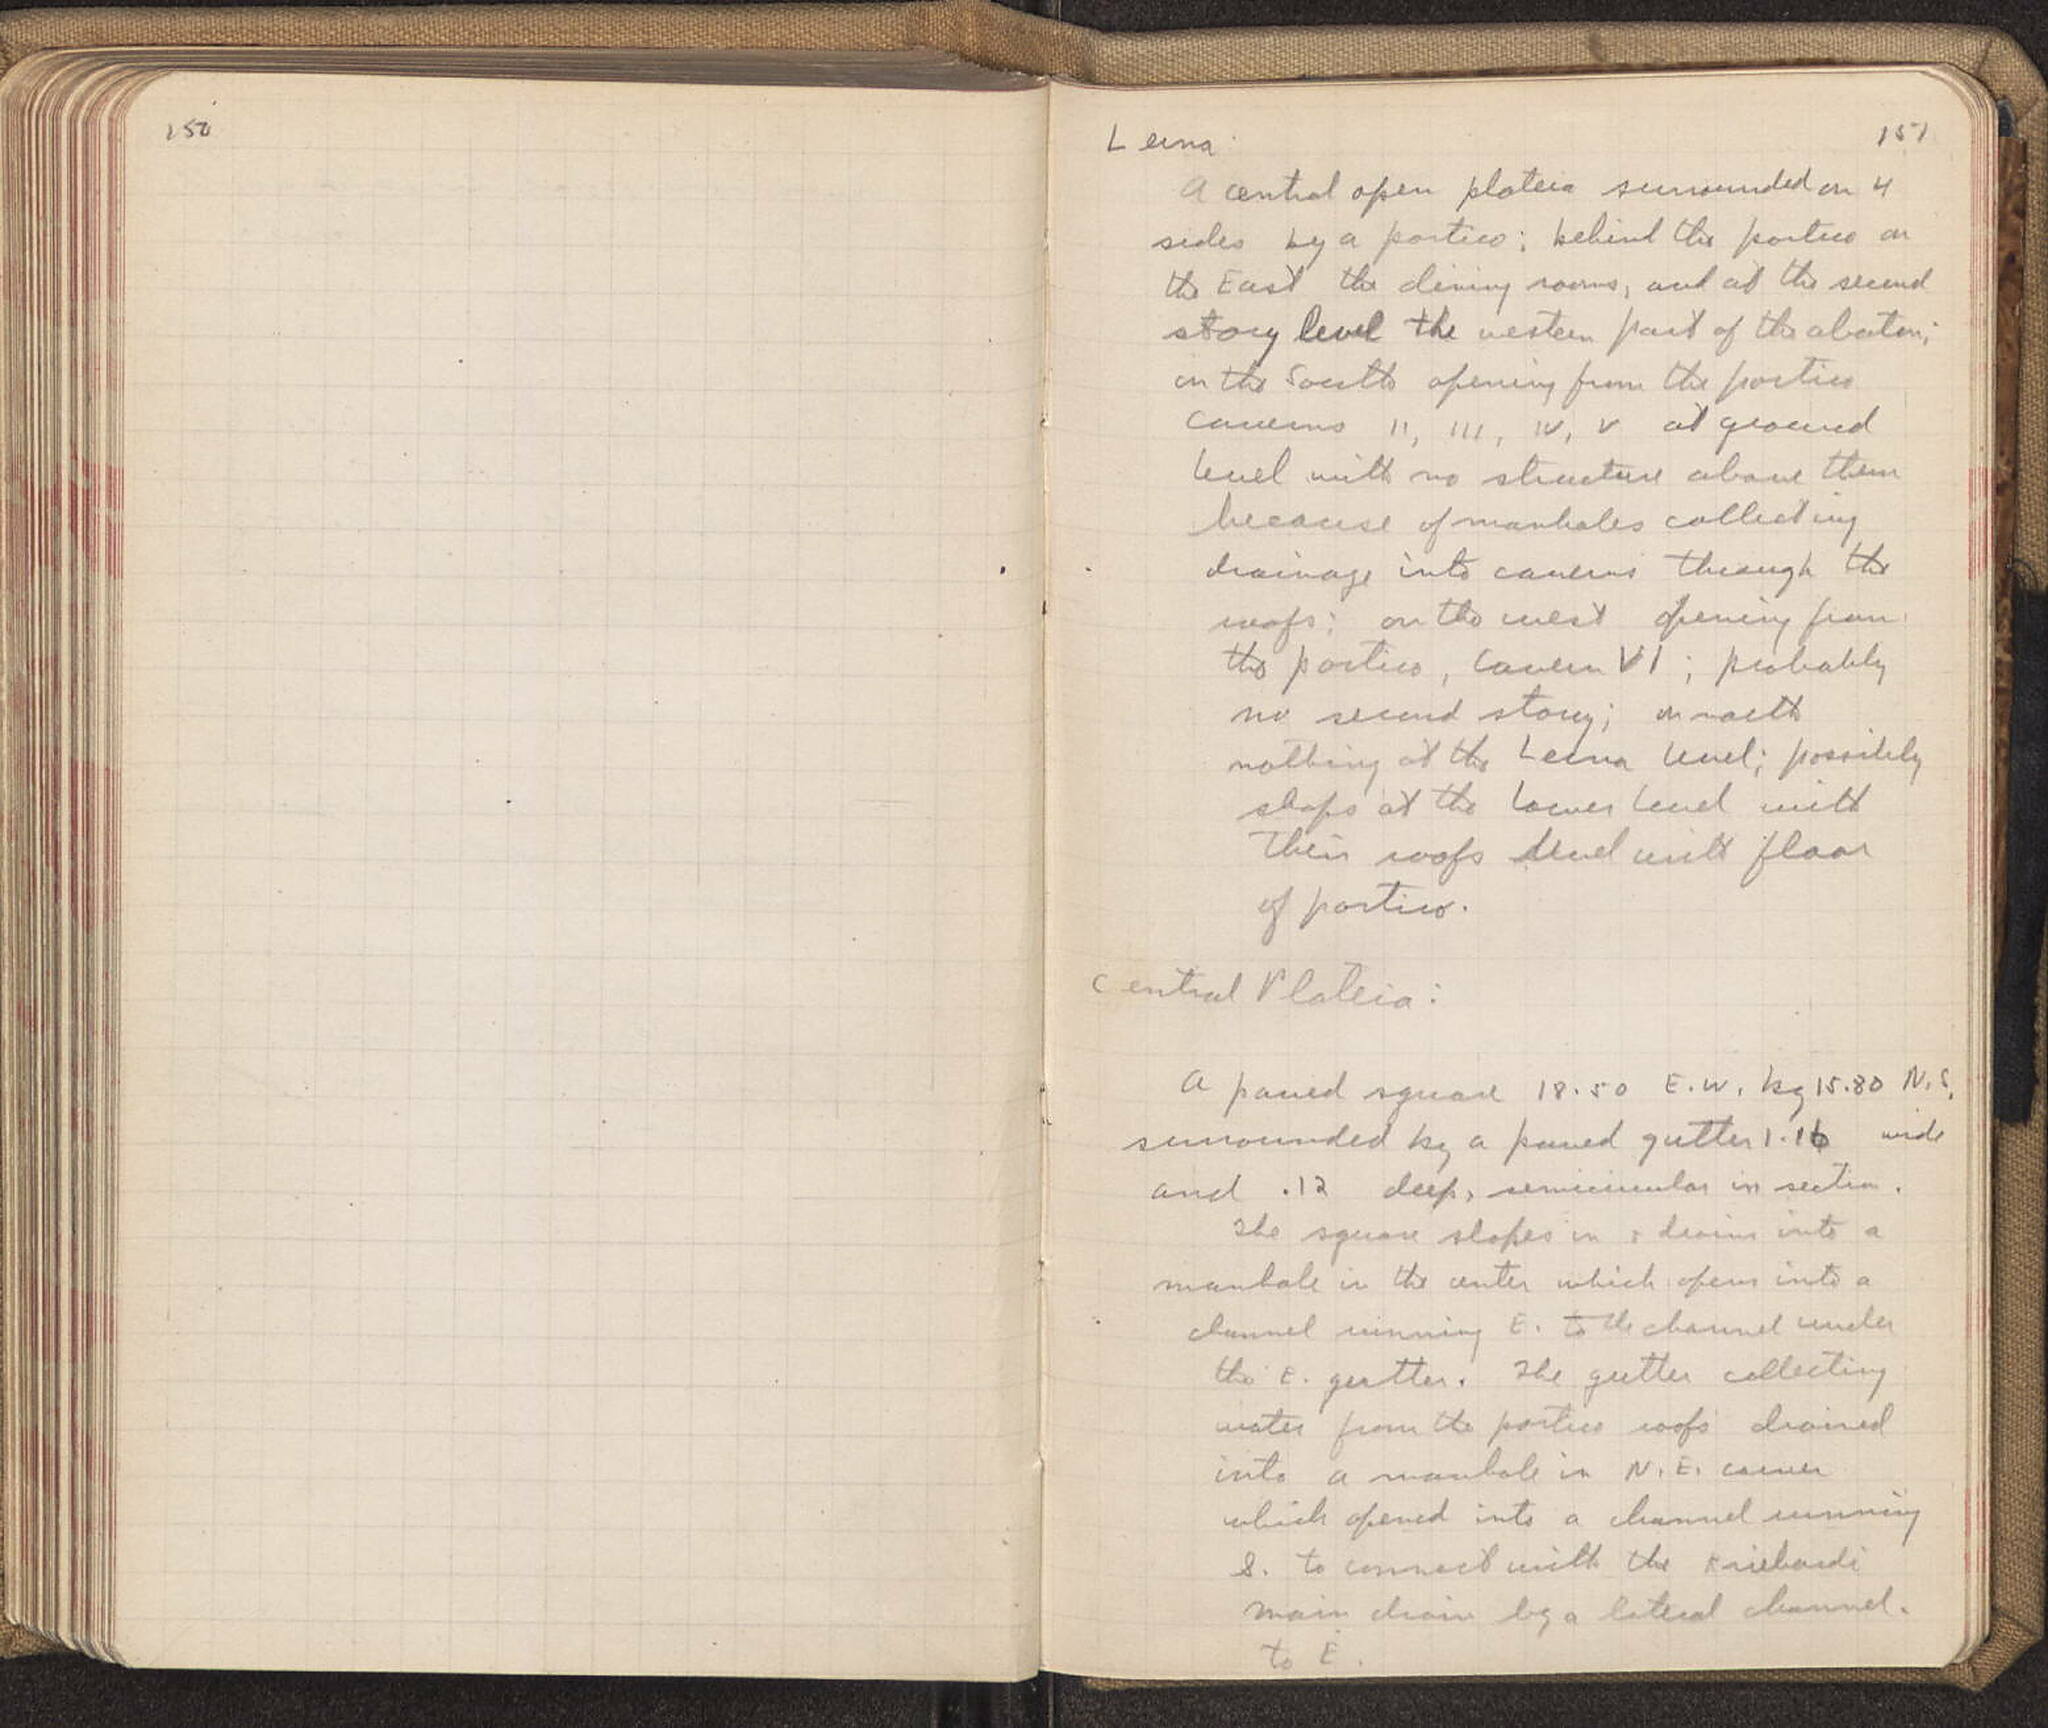 150
151
Lerna
A central open plateia surrounded on 4
sides by a portico; behind the portico on
the East the dining rooms, and at the second
story level the western part of the abaton;
on the South opening from the portico
caverns II, III, IV, V at ground
level with no structure above them
because of manholes collecting
drainage into caverns through the
roofs; on the west opening from
the portico, cavern VI; probably
no second story; on north
nothing at the Lerna level; possibly
shops at the lower level with
their roofs level with floor
of portico.
Central Plateia:
A paved square 18.50 E.W. by 15.80 N.S.
surrounded by a paved gutter 1.16 wide
and .12 deep, semicircular in section.
The square slopes in & drains into a
manhole in the center which opens into a
channel running E. to the channel under
the E. gutter. The gutter collecting
water from the portico roofs drained
into a manhole in N.E. corner
which opened into a channel running
S. to connect with the
main drain by a lateral channel.
to E.